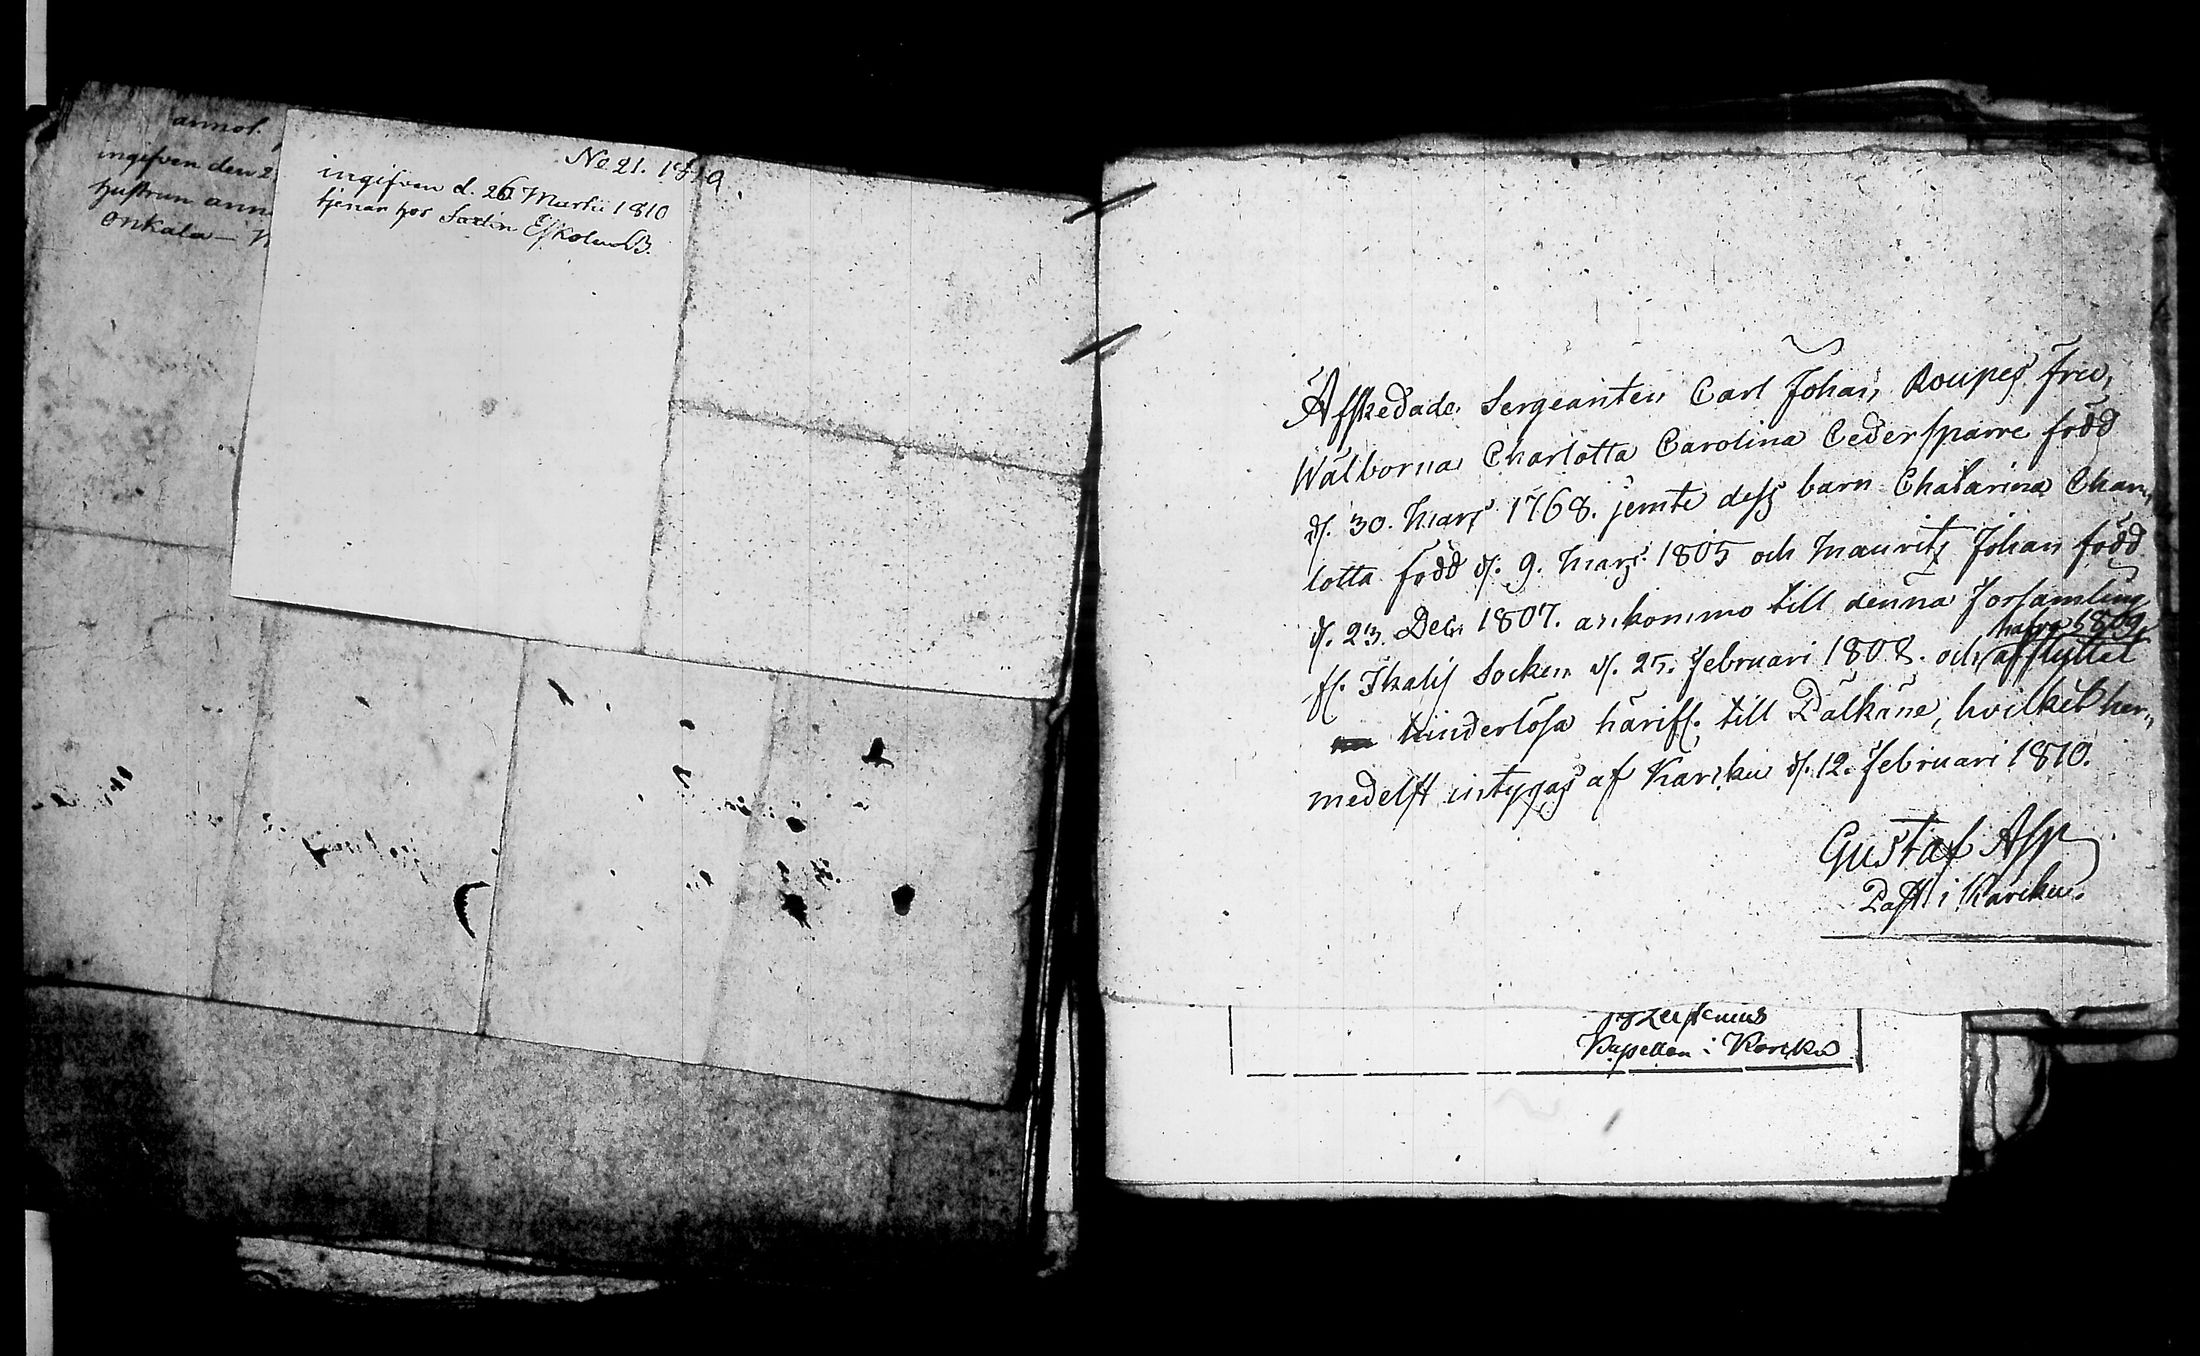 annot.
ingifven den 2
hustrun ann
Onkala —
No 21. 1810.
ingifven d. 26 Martii 1810
tjenar hos Saxlin Eskola B.
Afskedade Sergeanten Carl Johan Roupes fru,
Wälborna Charlotta Carolina Cedersparre född
d. 30. Mars 1768. jemte dess barn Chatarina Char„
lotta född d. 9. Mars 1805 och Mauritz Johan född
d. 23. Decr 1807. ankommo till denna Församling
hafva 1809,
fr. Ikalis Socken d. 25. Februari 1808. och afflyttat
hinderlösa härifr. till Pälkäne, hvilket här„
medelst intygas af Karcku d. 12. Februari 1810.
Gustaf Asp
Past i Karcku.
Kapellan i Karcku